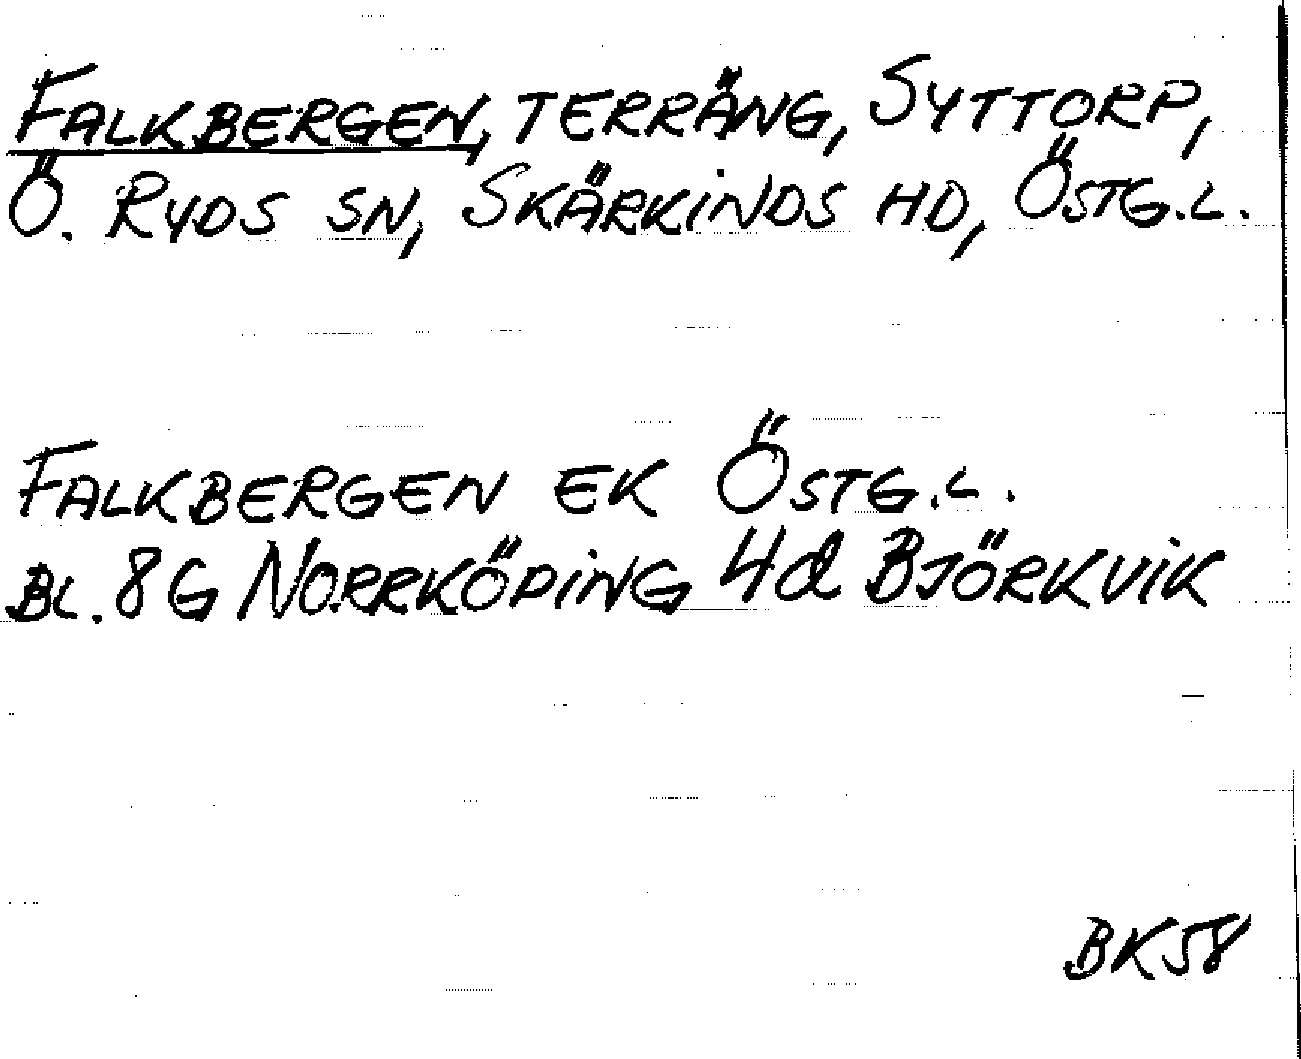 Falkbergen, terräng, Syttorp,
Ö. Ryds sn, Skärkinds hd, Östg.l.
Falkbergen ek Östg.l.
Bl. 8G Norrköping 4d Björkvik
BK58